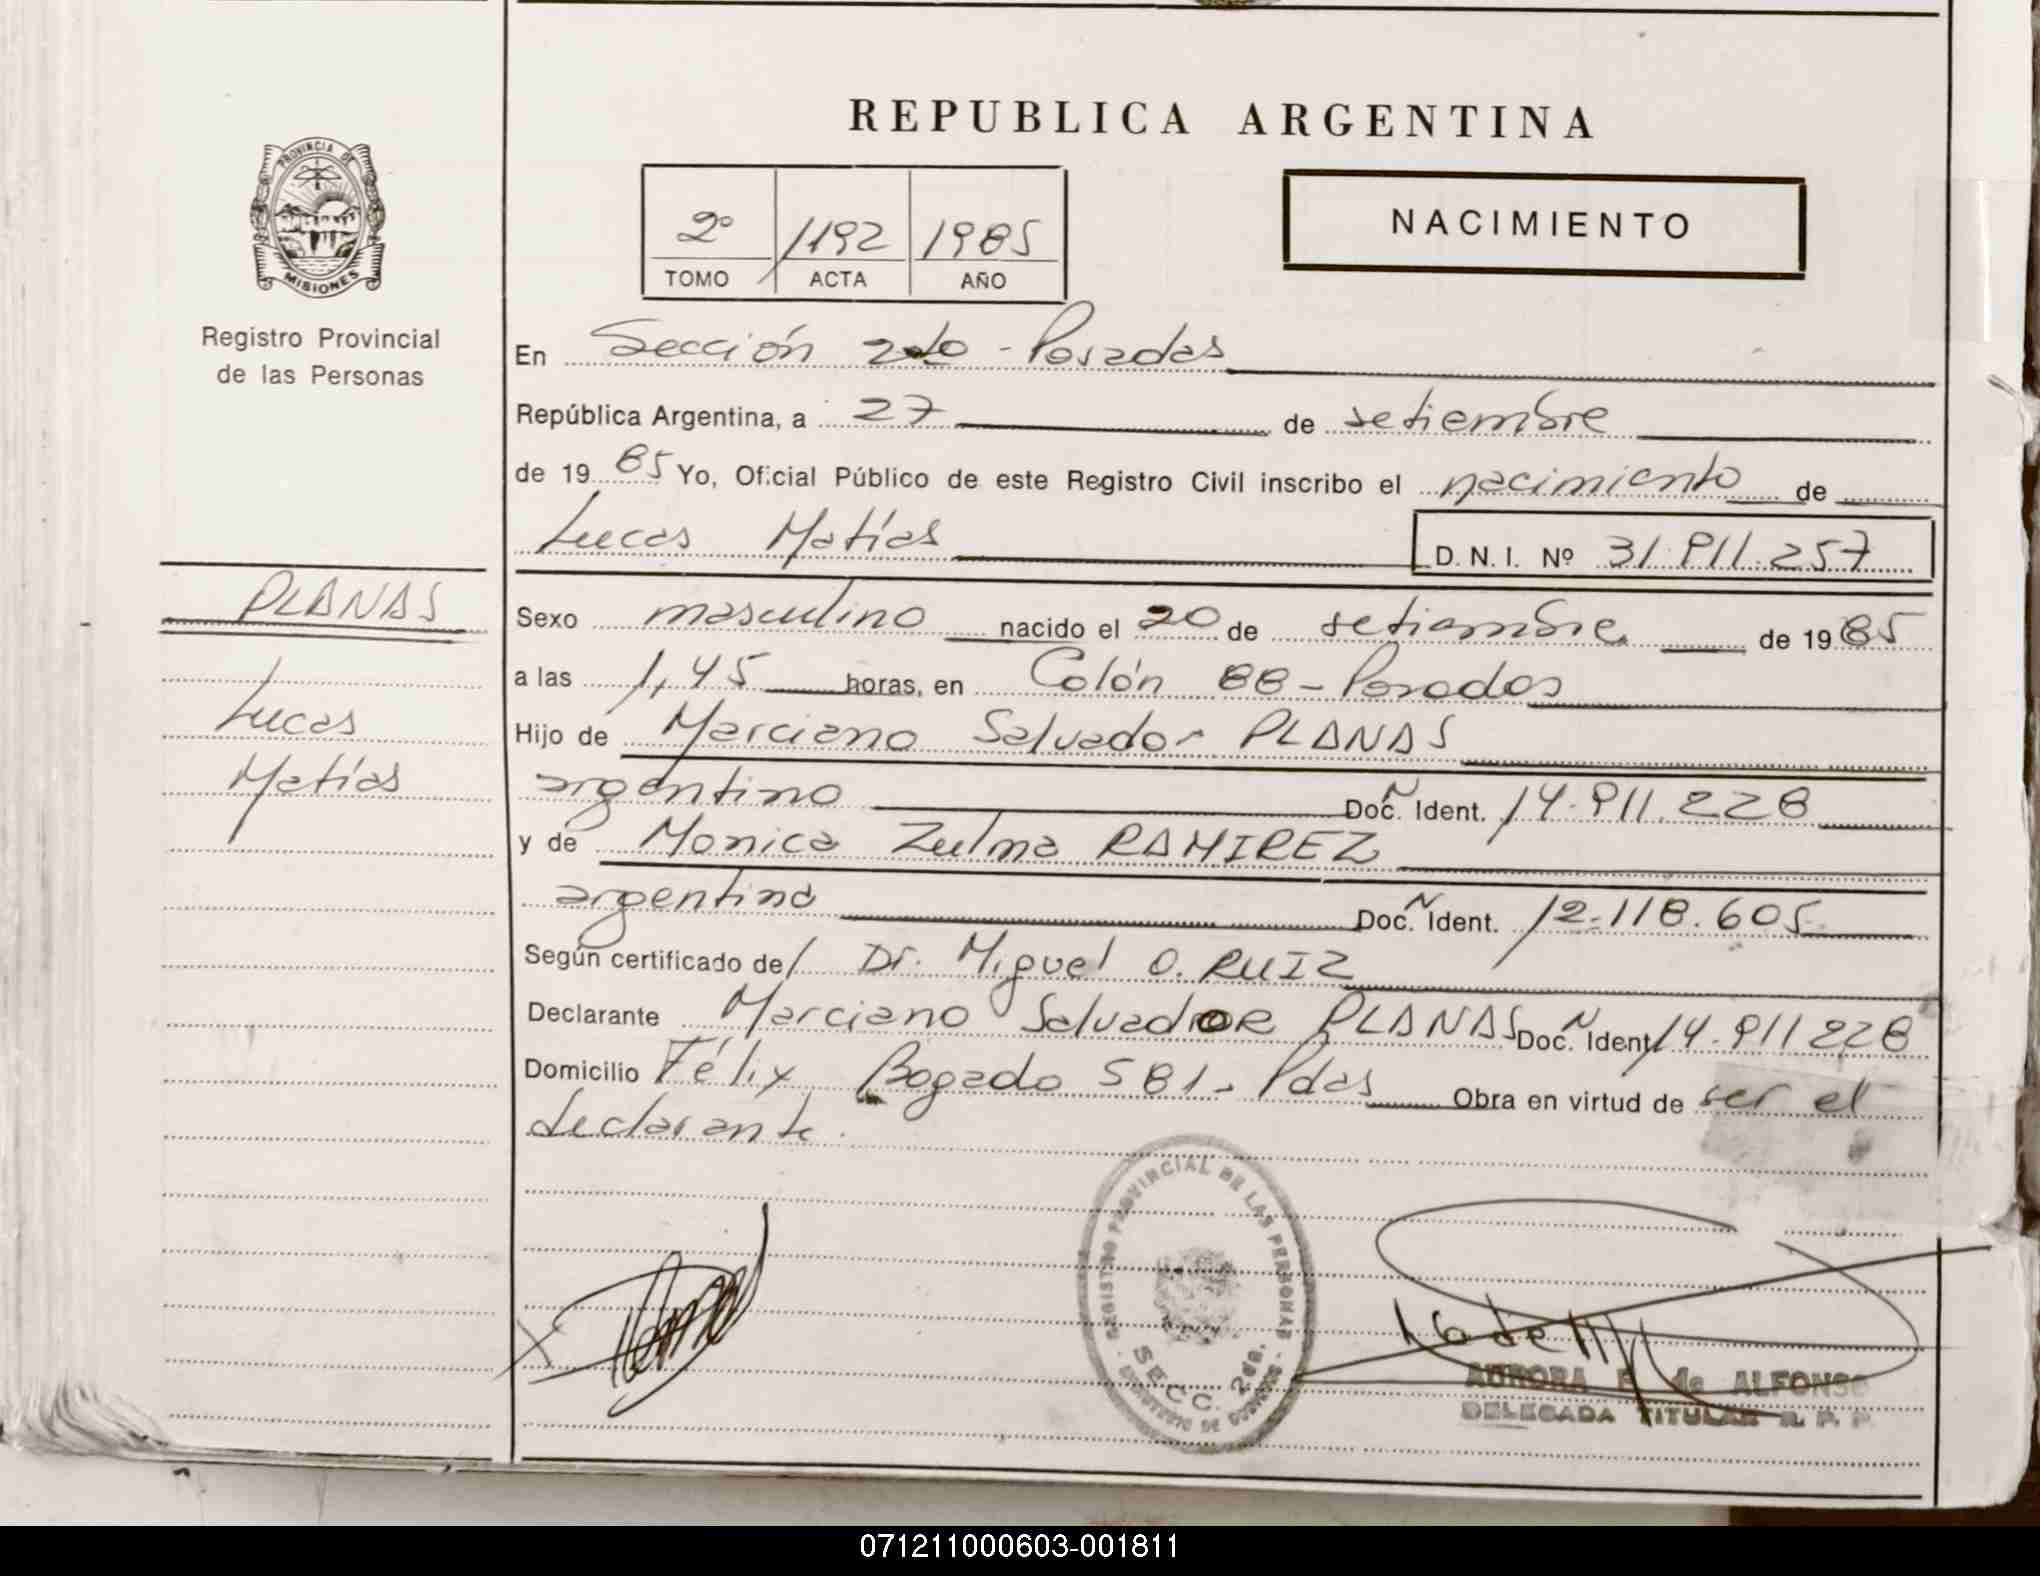 REPUBLICA ARGENTINA
PROVINCIA DE
MISIONES
Registro Provincial
de las Personas
2º 1192 1985
TOMO ACTA AÑO
NACIMIENTO
En Sección 2do - Posadas
República Argentina, a 27 de setiembre
de 19 85 Yo, Oficial Público de este Registro Civil inscribo el nacimiento de
Lucas Matías D. N. I. Nº 31.911.257
PLANAS
Lucas
Matías
Sexo masculino nacido el 20 de setiembre de 19 85
a las 1,45 horas, en Colón 88 - Posadas
Hijo de Marciano Salvador PLANAS
argentino Doc. Ident. 14.911.228
y de Monica Zulma RAMIREZ
argentina Doc. Ident. 12.118.605
Según certificado de Dr. Miguel O. RUIZ
Declarante Marciano Salvador PLANAS Doc. Ident. 14.911228
Domicilio Félix Bogado 581 - Pdas Obra en virtud de ser el
declarante.
REGISTRO PROVINCIAL DE LAS PERSONAS
SECC. 2da.
AURORA de ALFONSO
DELEGADA TITULAR R. P. P.
071211000603-001811